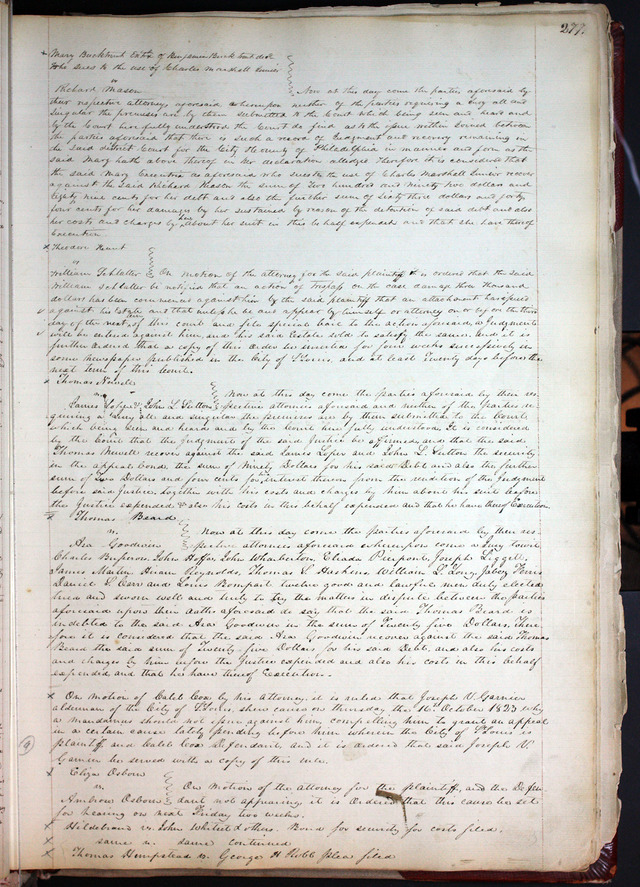 277.
Mary Bucktrout Extx of Benjamin Bucktrout decd
who sues to the use of Charles Marshall Junior
vs
Richard Mason Now at this day come the parties aforesaid by
their respective attorneys aforesaid whereupon neither of the parties requiring a Jury all and
Singular the premises are by them submitted to the Court which being seen and heard and
by the Court here fully understood the Court do find as to the issue neither Joined between
the parties aforesaid that there is such a record of Judgment and recovery remaining in
the said district Court for the City & County of Philadelphia in manner and form as the
said Mary hath above thereof in her declaration alledged Therefore it is considered that
the said Mary Executrix as aforesaid who sues to the use of Charles Marshall Junior recover
against the said Richard Mason the sum of Two hundred and Ninety two dollars and
Eighty nine cents for her debt and also the further sum of Sixty three dollars and forty
four cents for her damages by her sustained by reason of the detention of said debt and also
her costs and charges by her about her suit in this behalf expended and that she have thereof
Execution
Theodore Hunt
vs
William Schlatter On motion of the attorney for the said plaintiff it is ordered that the said
William Schlatter be notified that an action of Trespass on the case damage three thousand
dollars has been commenced against him by the said plaintiff that an attachment has issued
against his Estate and that unless he be and appear by himself or attorney on or before the third
day of the next term of this court and file special bail to the action aforesaid, a Judgment
will be entered against him, and his said Estate sold to satisfy the same. And it is
further ordered that a copy of this order be inserted for four weeks successively in
some newspaper published in the City of St Louis, and at least Twenty days before the
next term of this Court.
Thomas Newell
vs
James Loper & John L. Sutton Now at this day come the parties aforesaid by their re-
spective attornies aforesaid and neither of the Parties re-
quiring a Jury all and singular the premises are by them submitted to the Court
which being seen and heard and by the Court here fully understood. It is considered
by the Court that the Judgment of the said Justice be affirmed, and that the said
Thomas Newell recover against the said James Loper and John L. Sutton the security
in the appeal bond the sum of Ninety Dollars for his said Debt and also the further
sum of Two Dollars and four cents for interest thereon from the rendition of the Judgment
before said Justice, together with his costs and charges by him about his suit before
the Justice expended & also his costs in this behalf expended and that he have thereof Execution.
Thomas Beard
vs.
Asa Goodwin Now at this day come the parties aforesaid by their res-
pective attornies aforesaid whereupon come a Jury Towit
Charles Bosseron, John Hoffar, John Wharberton, Elihada Pierpont, Joseph Liggett,
James Martin, Hiram Reynolds, Thomas S. Huskins, William L. Long, Jabez Ferris
Daniel S. Carr and Louis Bompart twelve good and lawful men duly elected
tried and sworn well and truly to try the matters in dispute between the parties
aforesaid upon their oaths aforesaid do say that the said Thomas Beard is
indebted to the said Asa Goodwin in the sum of Twenty five Dollars, There-
fore it is considered that the said Asa Goodwin recover against the said Thomas
Beard the said sum of Twenty-five Dollars for his said Debt, and also his costs
and charges by him before the Justice expended and also his costs in this behalf
expended and that he have thereof Execution.
On Motion of Caleb Cox by his Attorney, it is ruled that Joseph V. Garnier
alderman of the City of St Louis, shew cause on Thursday the 16th October 1823 why
a mandamus should not issue against him, compelling him to grant an appeal
in a certain cause lately pending before him wherein the City of St Louis is
plaintiff and Caleb Cox Defendant, and it is ordered that said Joseph V.
Garnier be served with a copy of this rule.
Eliza Osborn
vs.
Ambrose Osborn On Motion of the attorney for the plaintiff, and the Defen-
dant not appearing, it is Ordered that this cause be set
for hearing on next Friday two weeks.
Hildebrand vs. John White & others. Bond for security for costs filed.
same vs. same continued
Thomas Hempstead vs. George H Robb plea filed